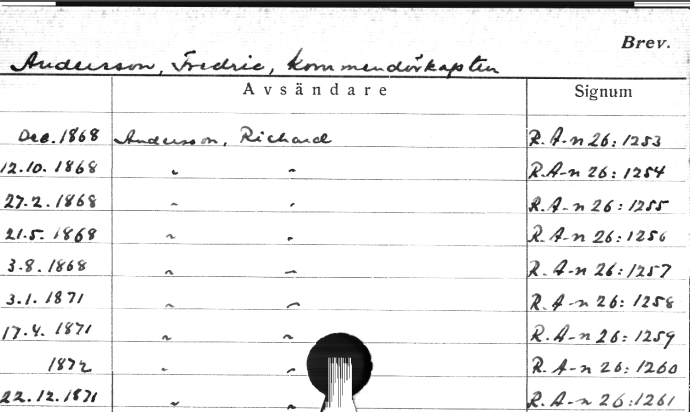 Brev.
Andersson, Fredric, Kommendörkapten
Avsändare Signum
Dec. 1868 Andersson, Richard R. A-n 26: 1253
12.10. 1868 " " R. A-n 26: 1254
27.2. 1868 " " R. A-n 26: 1255
21.5. 1868 " " R. A-n 26: 1256
3.8. 1868 " " R. A-n 26: 1257
3.1. 1871 " " R. A-n 26: 1258
17.4. 1871 " " R. A-n 26: 1259
1872 " " R. A-n 26: 1260
22.12.1871 " " R. A-n 26: 1261